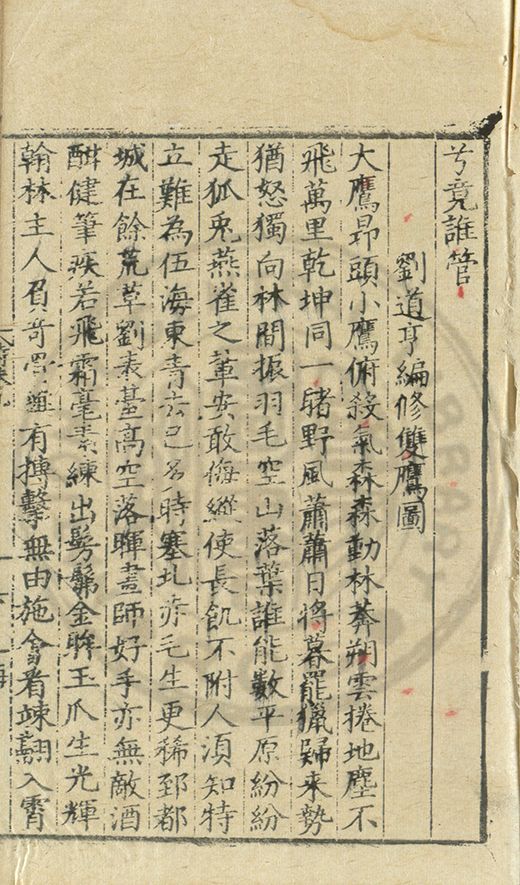 兮竟誰管
劉道亨編修雙鷹圖
大鷹昂頭小鷹俯殺氣森森動林莽朔雲捲地塵不
飛萬里乾坤同一睹野風蕭蕭日將暮罷獵歸来勢
猶怒獨向林間振羽毛空山落葉誰能數平原紛紛
走狐兎燕雀之軰安敢侮縱使長飢不附人湏知特
立難為伍海東青去已多時塞北赤毛生更稀郅都
城在餘荒草劉表臺高空落暉畫師好手亦無敵酒
酣健筆疾若飛霜毫素練出髣髴金眸玉爪生光輝
翰林主人負奇雖有搏擊無由施會看竦翮入霄